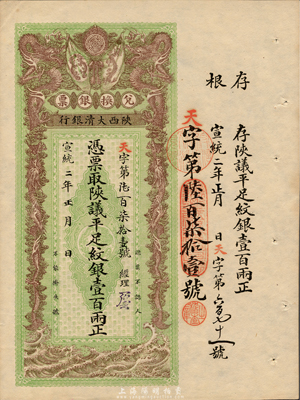 存根
存陝議平足紋銀壹百兩正
宣統二年正月 日天字第六百七十一號
天字第陸百柒拾壹號
兌換銀票
陝西大清銀行
天字第陸百柒拾壹號 經理
憑票取陝議平足紋銀壹百兩正
宣統二年正月 日